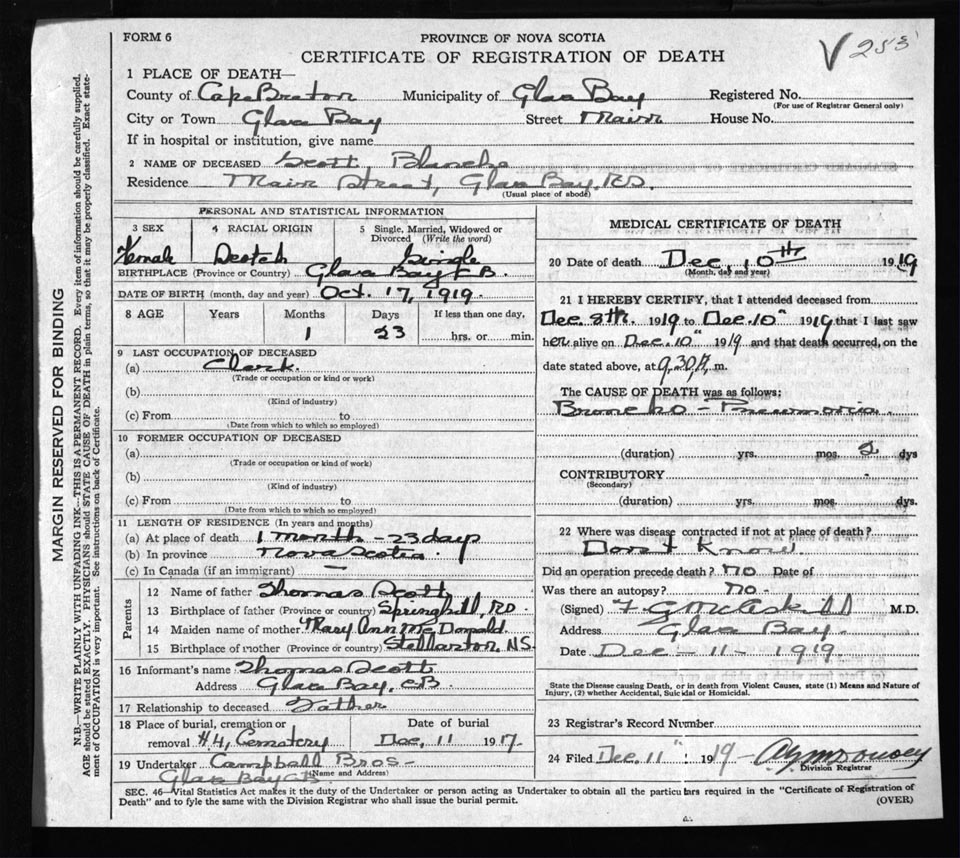 FORM 6
PROVINCE OF NOVA SCOTIA
CERTIFICATE OF REGISTRATION OF DEATH
253
1 PLACE OF DEATH—
County of Cape Breton Municipality of Glace Bay Registered No.
(For use of Registrar General only)
City or Town Glace Bay Street Main House No.
If in hospital or institution, give name
2 NAME OF DECEASED Scott, Blanche
Residence Main Street, Glace Bay, N.S.
(Usual place of abode)
PERSONAL AND STATISTICAL INFORMATION
3 SEX 4 RACIAL ORIGIN 5 Single, Married, Widowed or
Divorced (Write the word)
Female Scotch Single
BIRTHPLACE (Province or Country) Glace Bay C.B.
DATE OF BIRTH (month, day and year) Oct. 17, 1919.
8 AGE Years Months Days If less than one day,
1 23 hrs. or min.
9 LAST OCCUPATION OF DECEASED
(a) Clerk.
(Trade or occupation or kind or work)
(b)
(Kind of industry)
(c) From to
(Date from which to which so employed)
10 FORMER OCCUPATION OF DECEASED
(a)
(Trade or occupation or kind of work)
(b)
(Kind of industry)
(c) From to
(Date from which to which so employed)
11 LENGTH OF RESIDENCE (In years and months)
(a) At place of death 1 month - 23 days
(b) In province Nova Scotia.
(c) In Canada (if an immigrant) —
Parents
12 Name of father Thomas Scott
13 Birthplace of father (Province or country) Springhill, NS.
14 Maiden name of mother Mary Ann McDonald.
15 Birthplace of mother (Province or country) Stellarton, NS.
16 Informant's name Thomas Scott
Address Glace Bay, CB
17 Relationship to deceased Father
18 Place of burial, cremation or Date of burial
removal #4, Cemetery Dec, 11 1917.
19 Undertaker Campbell Bros-
(Name and Address)
Glace Bay CB
MEDICAL CERTIFICATE OF DEATH
20 Date of death Dec, 10th 1919
(Month, day and year)
21 I HEREBY CERTIFY, that I attended deceased from
Dec. 8th. 1919 to Dec. 10" 1919 that I last saw
her alive on Dec. 10" 1919 and that death occurred, on the
date stated above, at 9.30 A. m.
The CAUSE OF DEATH was as follows:
Broncho - Pneumonia.
(duration) yrs. mos. 2 dys
CONTRIBUTORY
(Secondary)
(duration) yrs. mos. dys.
22 Where was disease contracted if not at place of death?
Don't Know
Did an operation precede death? NO Date of
Was there an autopsy? NO -
(Signed) M.D.
Address Glace Bay.
Date Dec - 11 - 1919
State the Disease causing Death, or in death from Violent Causes, state (1) Means and Nature of
Injury, (2) whether Accidental, Suicidal or Homicidal.
23 Registrar's Record Number
24 Filed Dec. 11" 1919-
Division Registrar
SEC. 46—Vital Statistics Act makes it the duty of the Undertaker or person acting as Undertaker to obtain all the particulars required in the "Certificate of Registration of
Death" and to fyle the same with the Division Registrar who shall issue the burial permit.
(OVER)
MARGIN RESERVED FOR BINDING
N.B.—WRITE PLAINLY WITH UNFADING INK—THIS IS A PERMANENT RECORD. Every item of information should be carefully supplied.
AGE should be stated EXACTLY. PHYSICIANS should STATE CAUSE OF DEATH in plain terms, so that it may be properly classified. Exact state-
ment of OCCUPATION is very important. See instructions on back of Certificate.